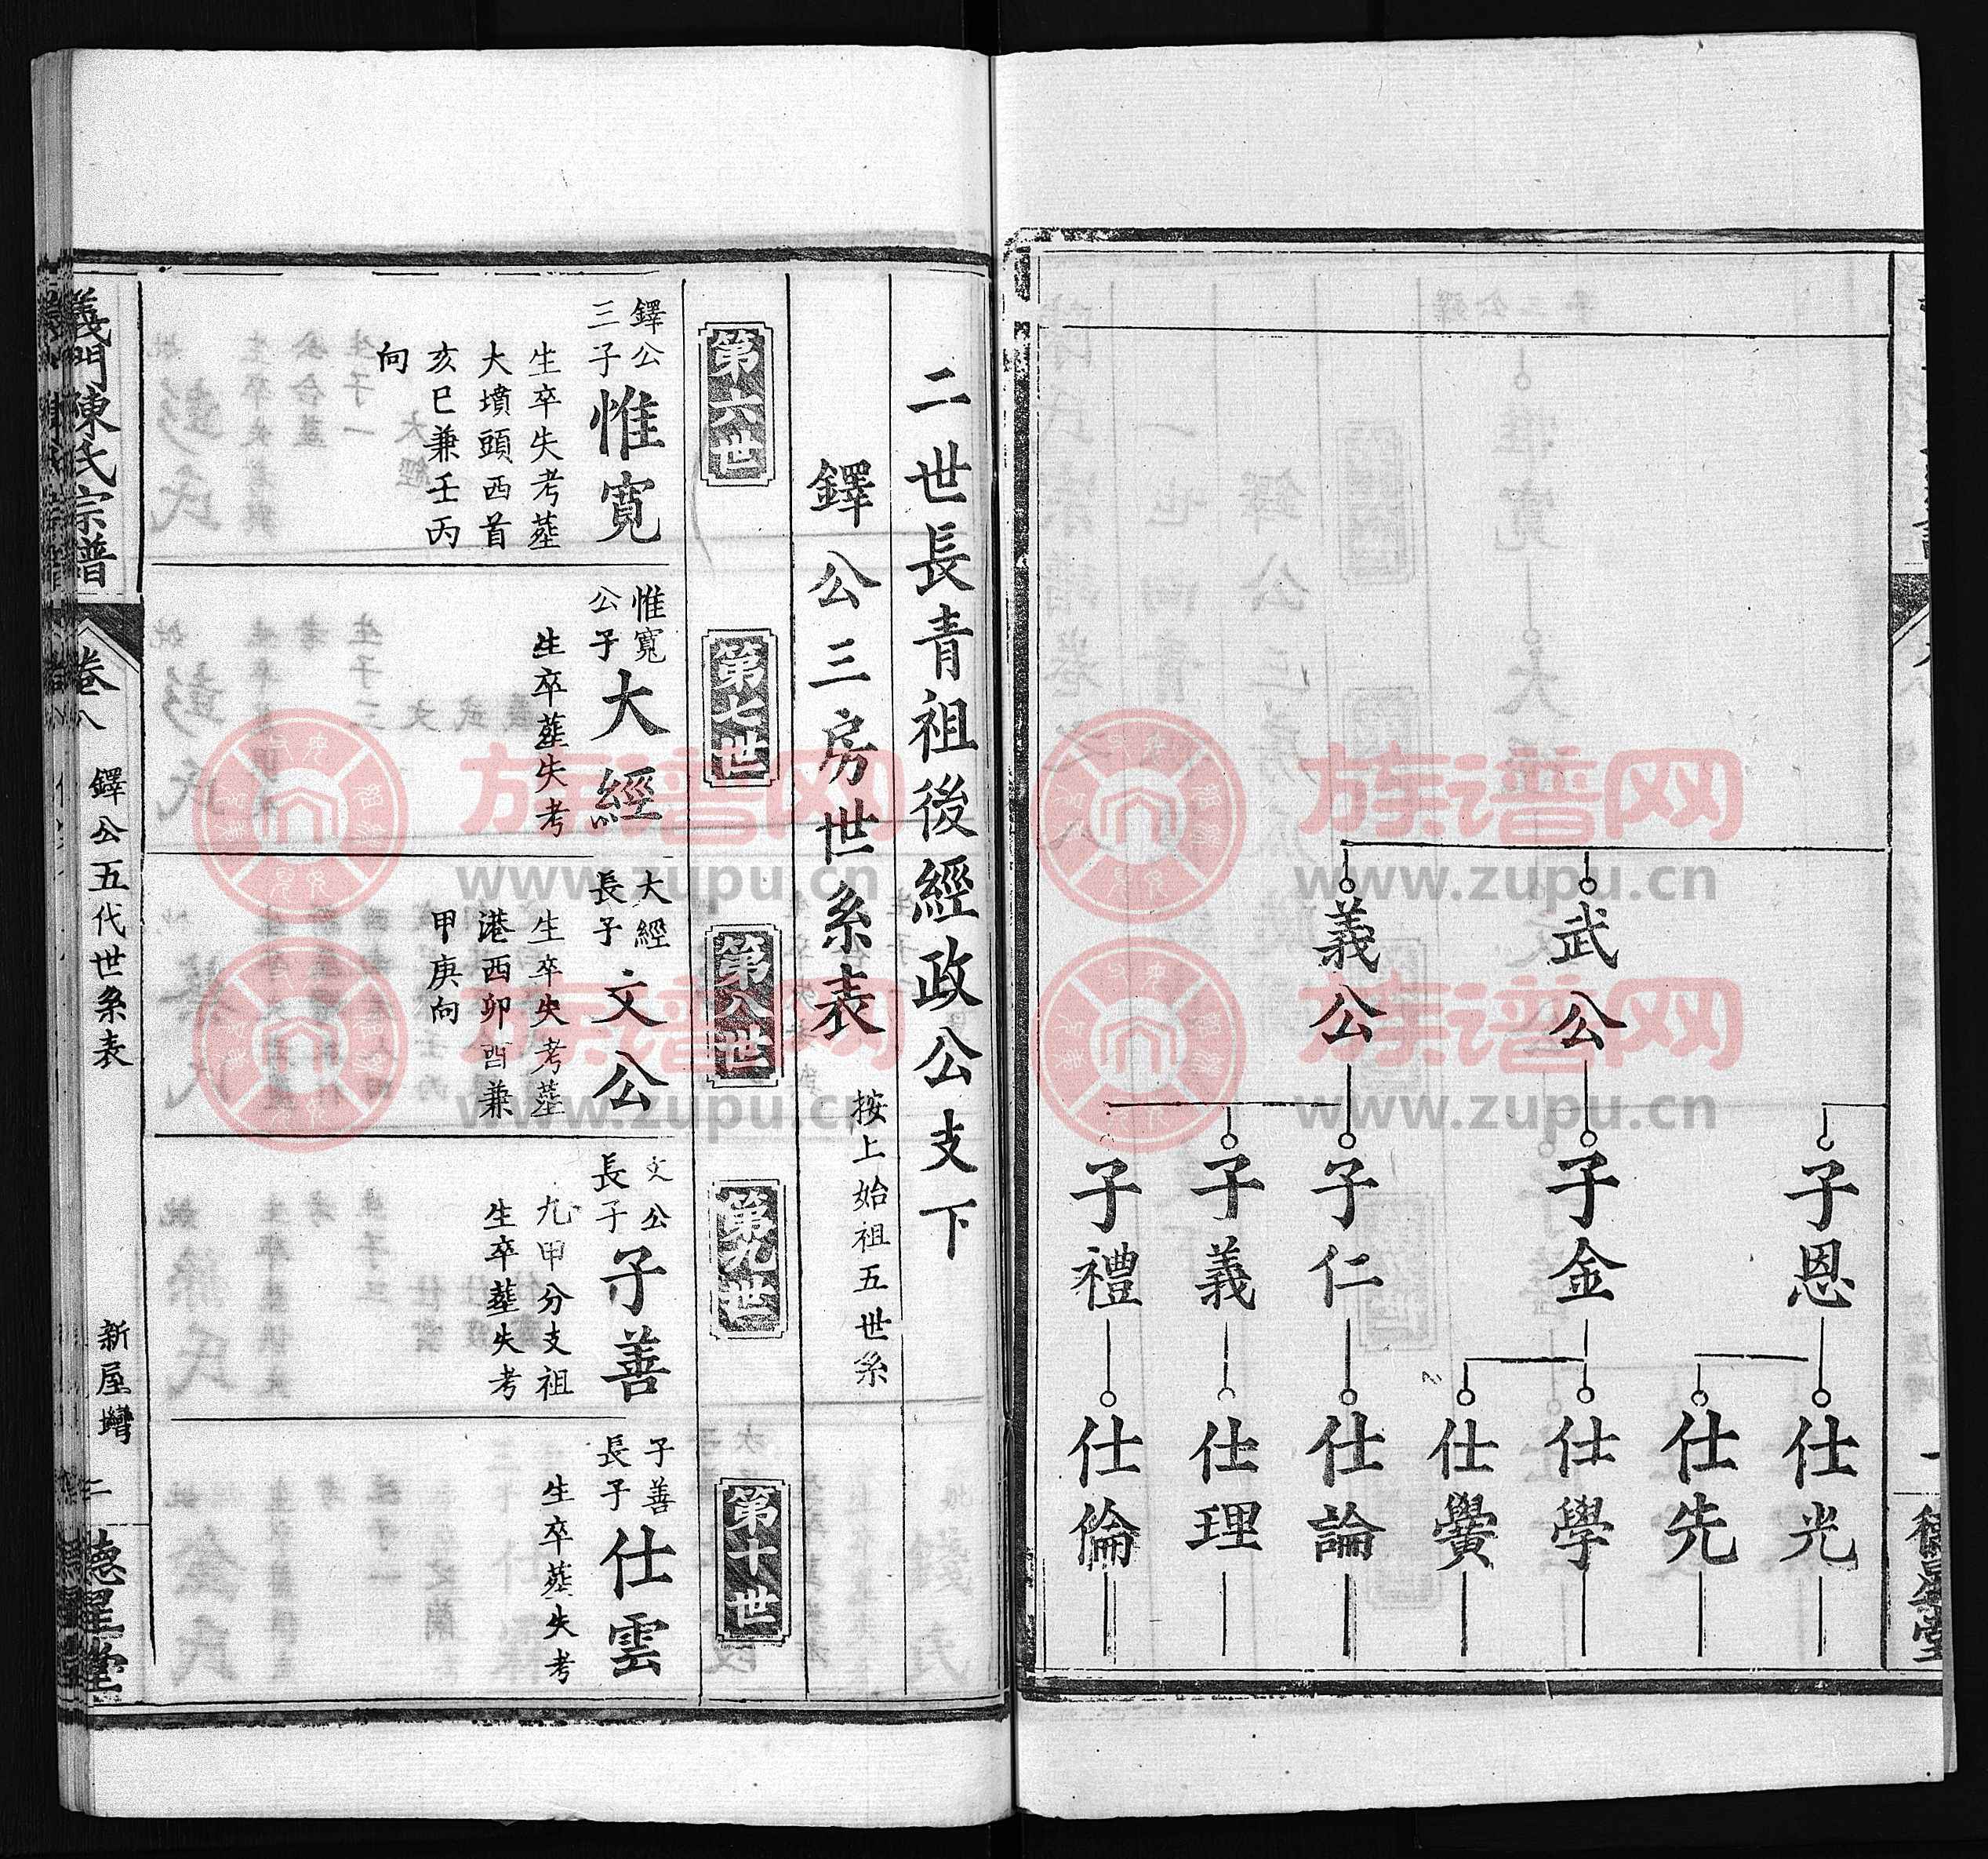 武公
義公
子恩
子金
子仁
子義
子禮
仕光
仕先
仕學
仕黌
仕論
仕理
仕倫
二世長青祖後經政公支下
鐸公三房世系表
按上始祖五世系
第六世
第七世
第八世
第九世
第十世
鐸公
三子
惟寬
生卒失考塟
大墳頭西首
亥巳兼壬丙
向
惟寬
公子
大經
生卒塟失考
大經
長子
文公
生卒失考塟
港西卯酉兼
甲庚向
文公
長子
子善
九甲分支祖
生卒塟失考
子善
長子
仕雲
生卒塟失考
義門陳氏宗譜
卷八
鐸公五代世系表
新屋塆
二
德星堂
族谱网
www.zupu.cn
族谱网
www.zupu.cn
族谱网
www.zupu.cn
族谱网
www.zupu.cn